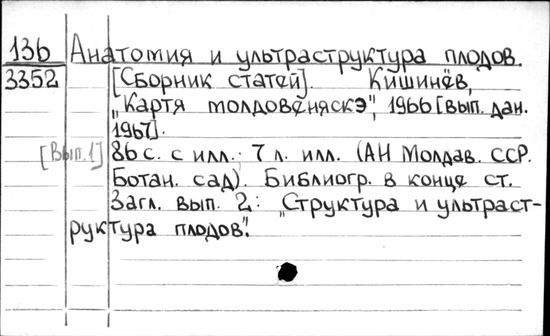 136 Анатомия и ультраструктура плодов.
3352 [Сборник статей]. Кишинёв,
„Картя молдовеняскэ", 1966 [вып. дан.
1967].
[Вып. 1] 86 с. с илл.; 7 л. илл. (АН Молдав. ССР.
Ботан. сад). Библиогр. в конце ст.
Загл. вып. 2: „Структура и ультраст-
руктура плодов".